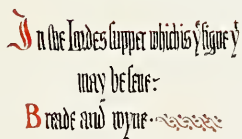 In the Lordes supper which is yͤ signe yͭ
may be sene:
Breade and wyne.